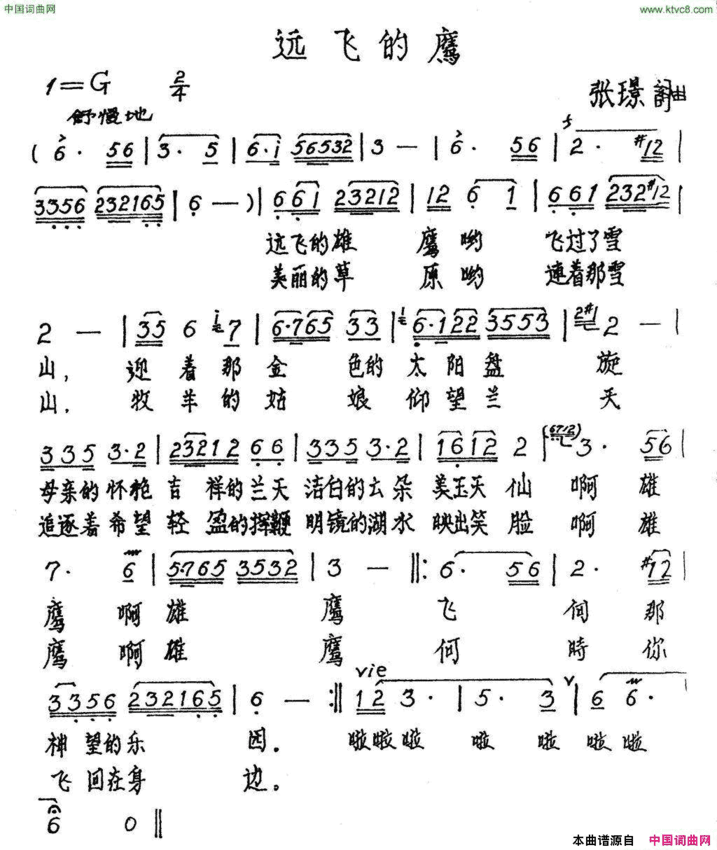 中国词曲网
www.ktvc8.com
远飞的鹰
1=G 2/4
张璟 詞曲
舒慢地
( 6· 56 | 3· 5 | 6·i 56532 | 3 — | 6· 56 | 2· #12 |
3356 232165 | 6 — ) | 66i 23212 | 12 6 1 | 661 232#12 |
远飞的雄 鹰哟 飞过了雪
美丽的草 原哟 連着那雪
2 — | 35 6 7 | 6·765 33 | 6·122 3553 | 2 — |
山, 迎着那金 色的太阳盘 旋
山, 牧羊的姑 娘仰望兰 天
335 3·2 | 23212 66 | 335 3·2 | 1612 2 | 3· 56 |
母亲的怀抱 吉祥的兰天 洁白的云朵 美玉天仙 啊雄
追逐着希望 轻盈的挥鞭 明镜的湖水 映出笑脸 啊雄
7· 6 | 5·765 3532 | 3 — ‖: 6· 56 | 2· #12 |
鹰 啊雄 鹰 飞 向那
鹰 啊雄 鹰 何 時你
3356 232165 | 6 — :‖ vie 12 3· | 5· 3 | v 6 6· |
神望的乐 园。 啦啦啦 啦 啦 啦啦
飞回在身 边。
6 0 ‖
本曲谱源自 中国词曲网